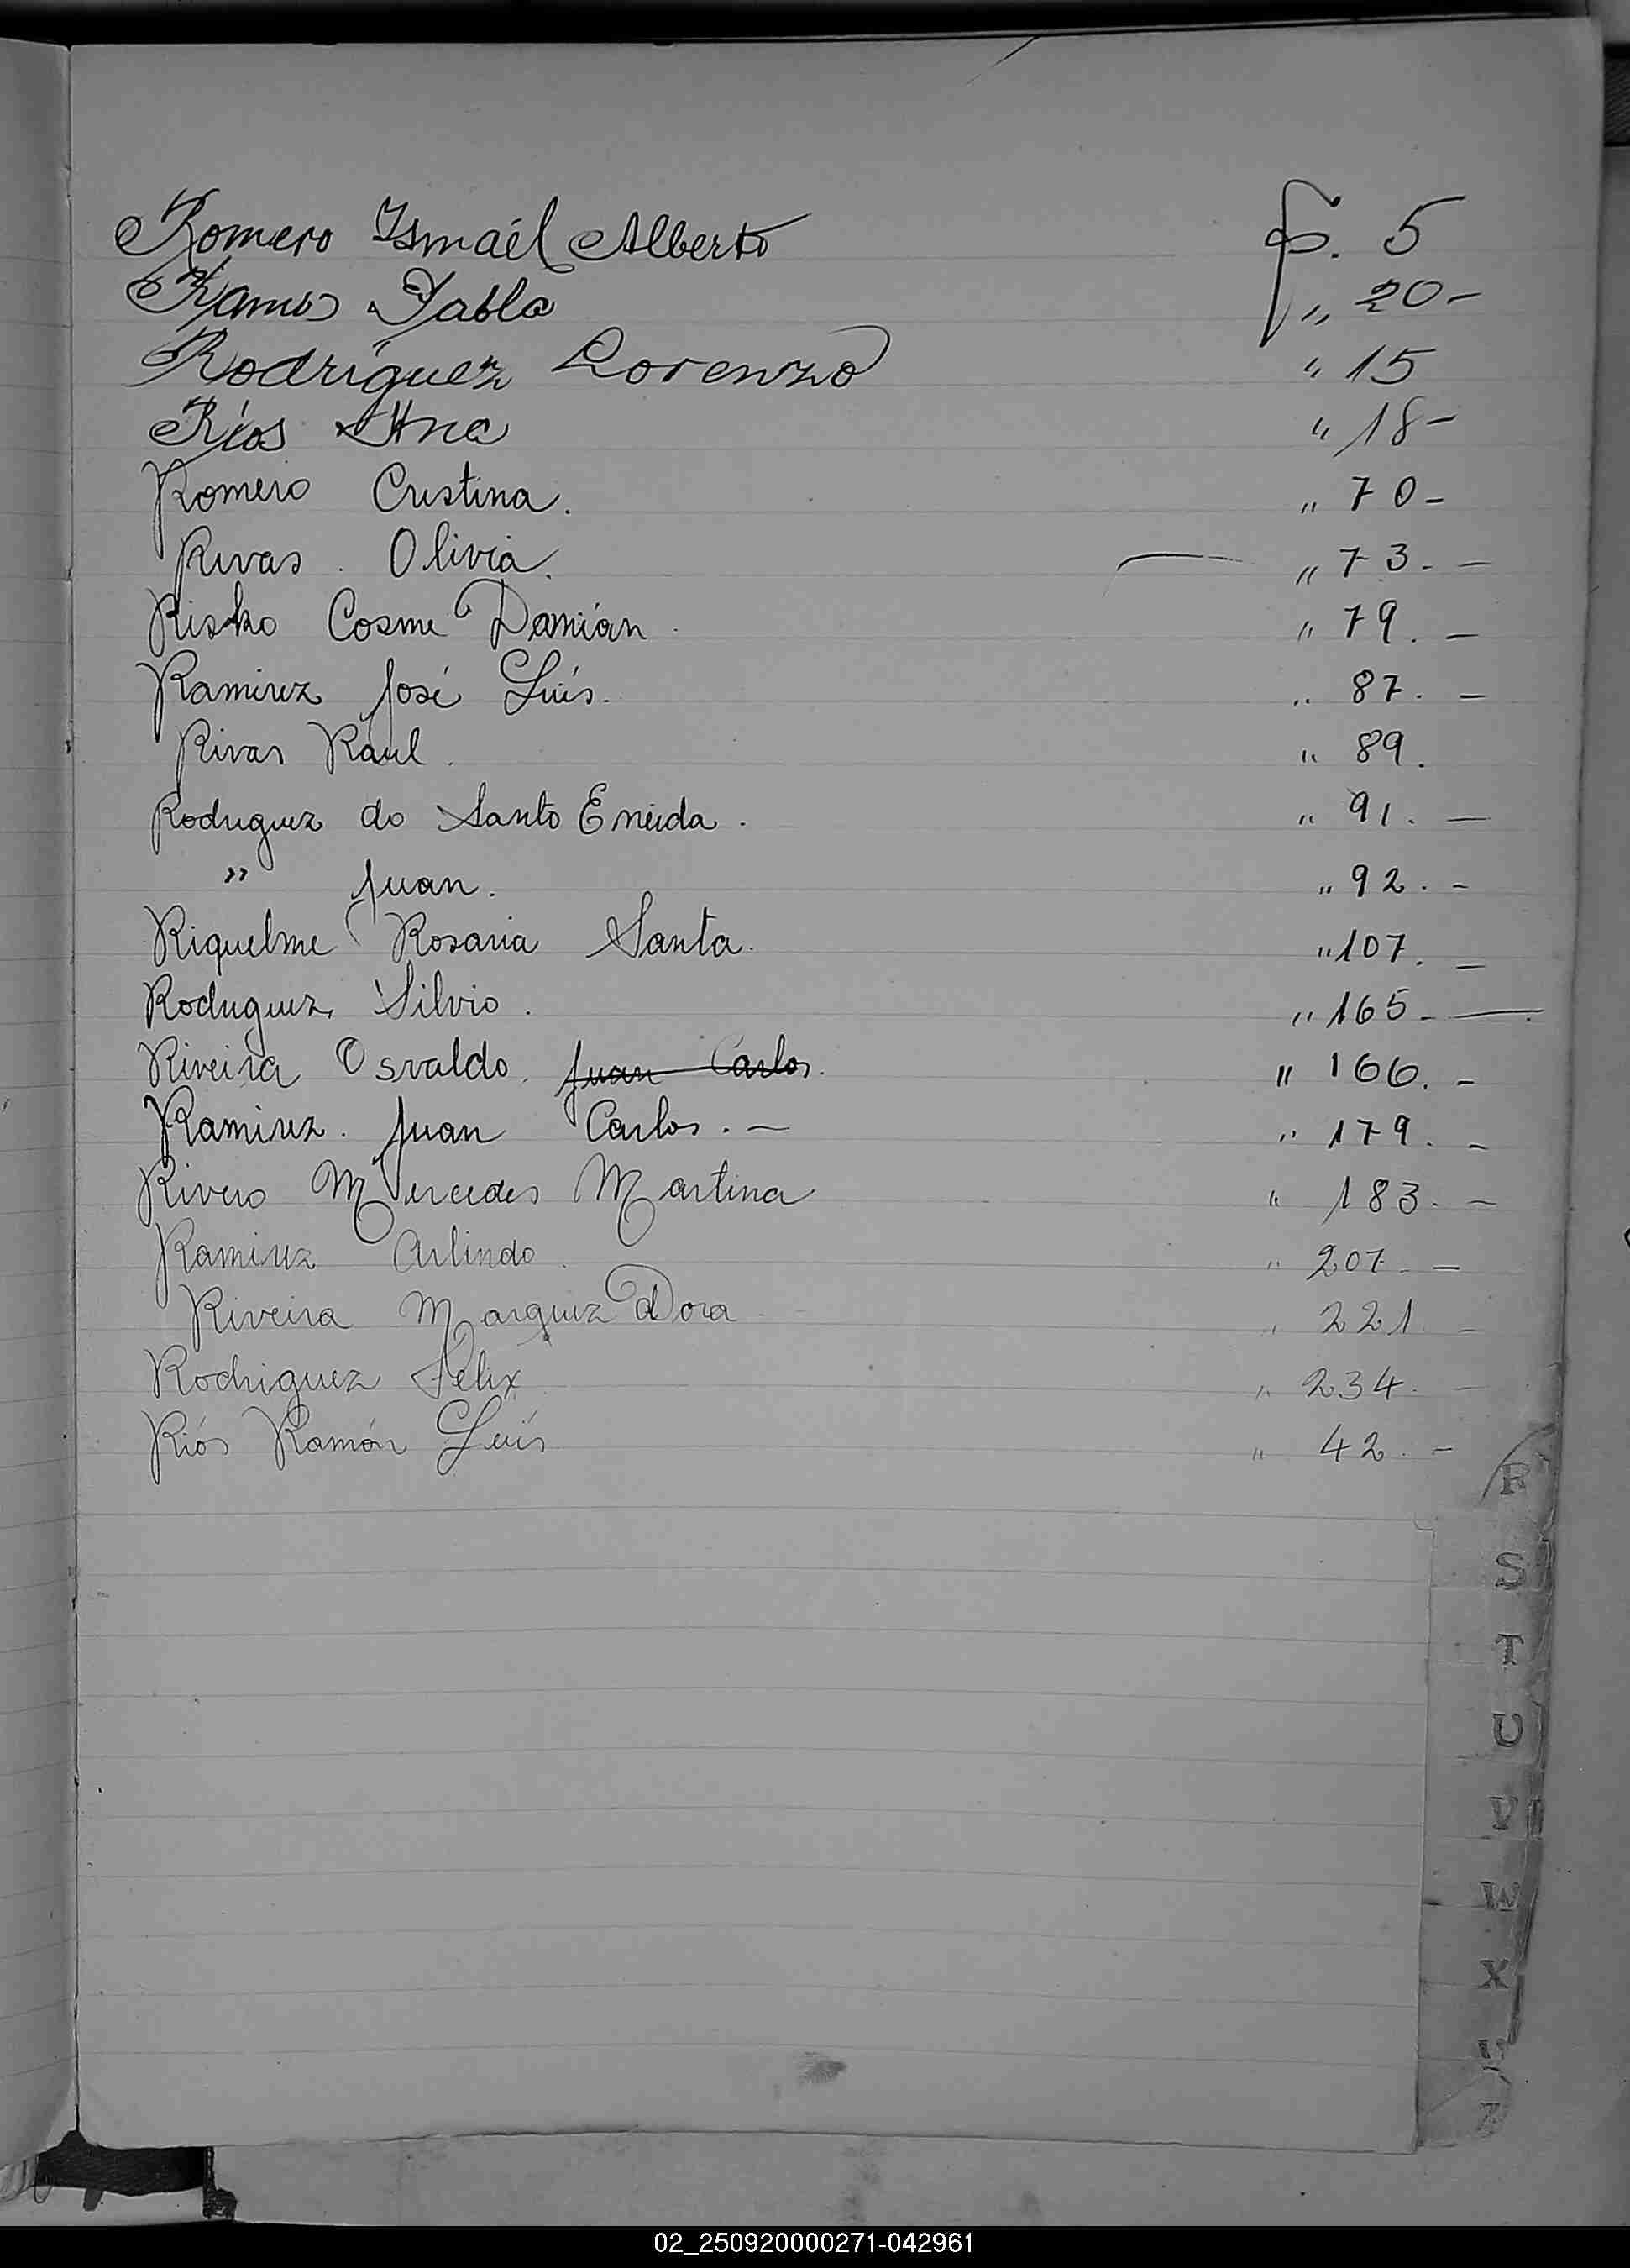 Romero Ismaél Alberto fs. 5
Ramos Pablo „ 20-
Rodríguez Lorenzo " 15
Ríos Ana " 18-
Romero Cristina. „ 70-
Rivas. Olivia. „ 73.-
Risko Cosme Damián. " 79.-
Ramirez José Luis. .. 87.-
Rivas Raul. " 89.
Rodriguez do Santo Eneida. " 91.-
" Juan. „ 92.-
Riquelme Rosaria Santa. " 107.-
Rodriguez Silvio. „ 165.-
Riveira Osvaldo. Juan Carlos. " 166.-
Ramirez. Juan Carlos.- " 179.-
Rivero Mercedes Martina " 183.-
Ramirez Arlindo. " 207.-
Riveira Marquez Dora " 221-
Rodriguez Felix „ 234.-
Ríos Ramón Luis " 42.-
R
S
T
U
V
W
X
Z
02_250920000271-042961